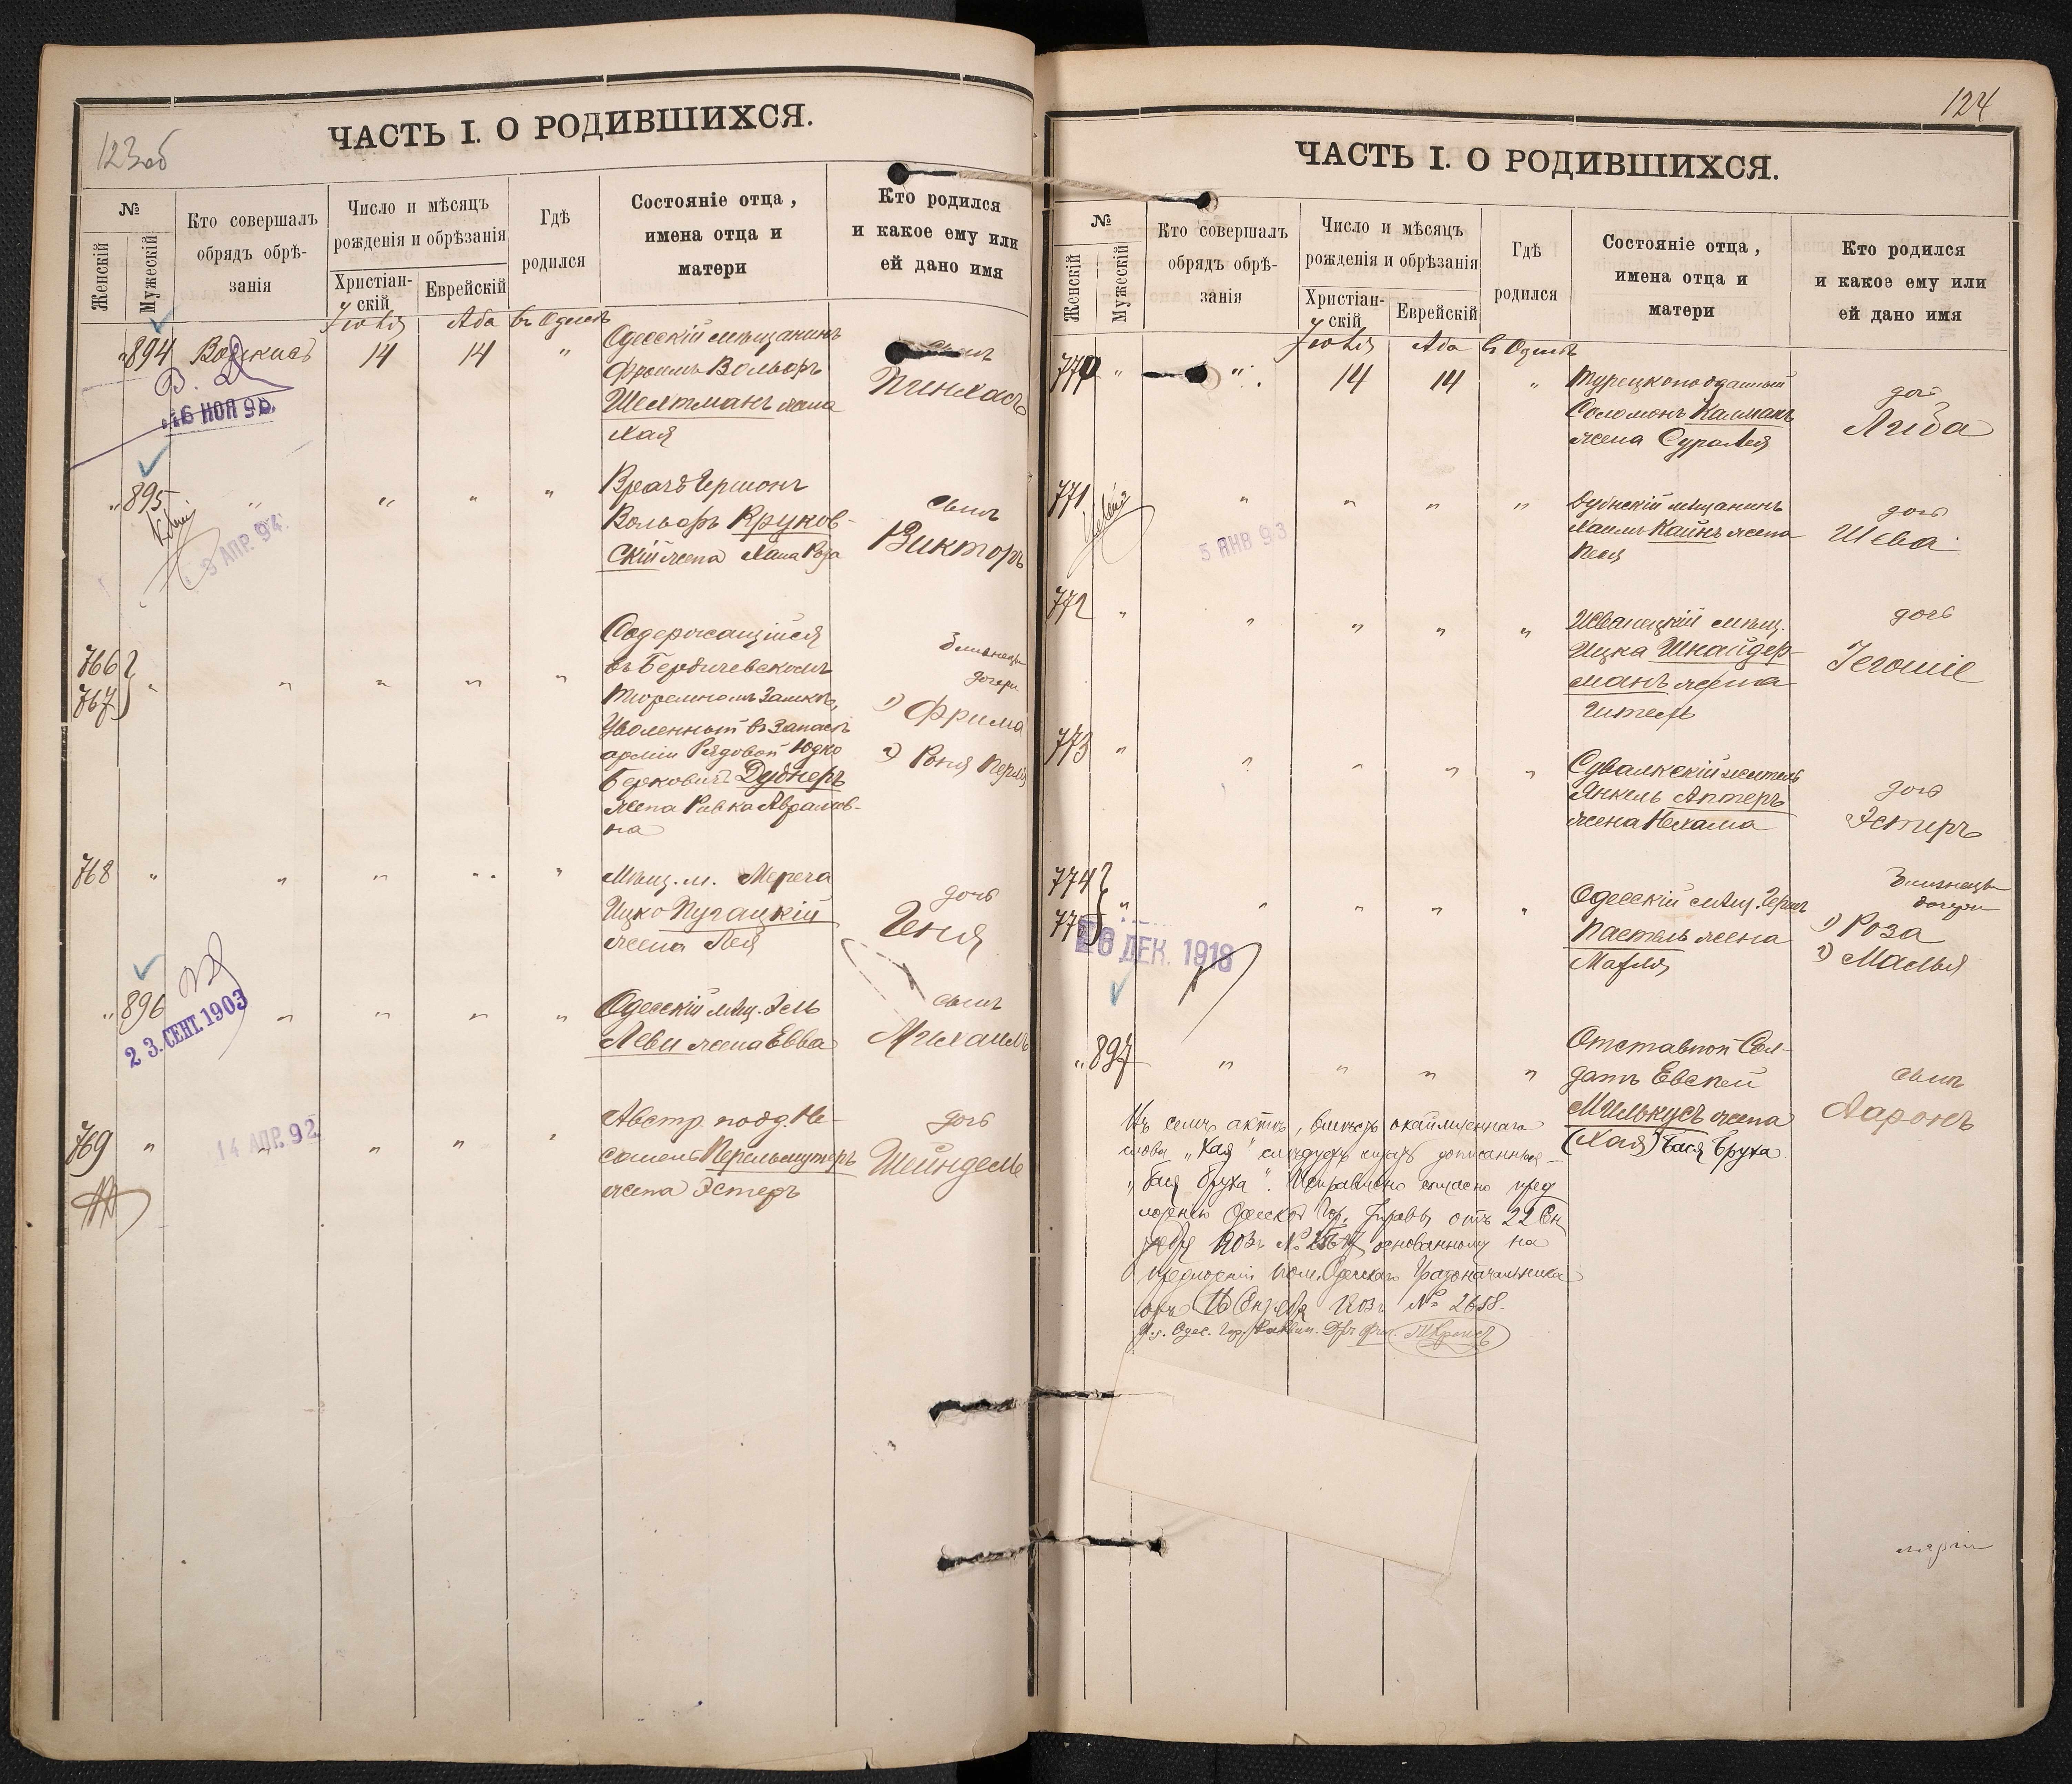 123об
ЧАСТЬ I. О РОДИВШИХСЯ.
№
Женскій
Мужескій
Кто совершалъ
обрядъ обрѣ-
занія
Число и мѣсяцъ
рожденія и обрѣзанія
Христіан-
скій
Еврейскій
Гдѣ
родился
Состояніе отца,
имена отца и
матери
Кто родился
и какое ему или
ей дано имя
Іюля Аба въ Одессѣ
" 894 14 14 "
Одесскій мѣщанинъ
Фроимъ Вольфъ
Шелтманъ жена
Хая
сынъ
Пинхасъ
16 НОЯ 9
" 895 " " " "
Врачъ Гершонъ
Вольфъ Круков-
скій жена Хана Роза
сынъ
Викторъ
3 АПР. 94.
766
767 " " " " "
Содержащійся
въ Бердичевскомъ
Тюремномъ Замкѣ,
Уволенный въ Запасъ
арміи Рядовой Юдко
Берковичъ Дубнеръ
жена Ривка Аврамов-
на
близнецы
дочери
1) Фрима
2) Роня Перля
768 " " " " "
Мѣщ. м. Мереча
Ицко Пугацкій
жена Лея
дочь
Геня
" 896 " " " "
23. СЕНТ. 1903
Одесскій мѣщ.
Леви жена Евва
сынъ
Михаилъ
769 " " " "
14 АПР. 92.
Австр. подд. Не-
сонель Перельмутеръ
жена Эстеръ
дочь
Шейндель
124
ЧАСТЬ I. О РОДИВШИХСЯ.
№
Женскій
Мужескій
Кто совершалъ
обрядъ обрѣ-
занія
Число и мѣсяцъ
рожденія и обрѣзанія
Христіан-
скій
Еврейскій
Гдѣ
родился
Состояніе отца,
имена отца и
матери
Кто родился
и какое ему или
ей дано имя
Іюля Аба въ Одессѣ
770 " " 14 14 "
Турецкоподданный
Соломонъ Калмакъ
жена Сура Лея
дочь
Либа
771 " " " "
5 ЯНВ 93
Дубнскій мѣщанинъ
Хаимъ Кайнъ жена
Песя
дочь
Шева
772 " " " " "
мѣщ.
Ицка Шнайдер-
манъ жена
Гитель
дочь
773 " " " " "
Сувалкскій житель
Янкель Аптеръ
жена Нехама
дочь
Эстеръ
774
775 " " " " "
26 ДЕК. 1918
Одесскій мѣщ. Герш
Пастель жена
Маля
Близнецы
дочери
1) Роза
2) Малья
" 897 " " " "
Отставной Сол-
датъ Евсей
Милькусъ жена
(Хая) Бася Бруха
сынъ
Ааронъ
Въ семъ актѣ, вмѣсто окаймленнаго
слова "Хая" слѣдуетъ читать дописанныя
"Бася Бруха". Исправлено согласно пред
ложенію Одесской Гор. Управы отъ 22 Сен
тября 1903 г. № основанному на
предложеніи Гом. Одесскаго Градоначальника
отъ 16 Сентября 1903 г. № 2658.